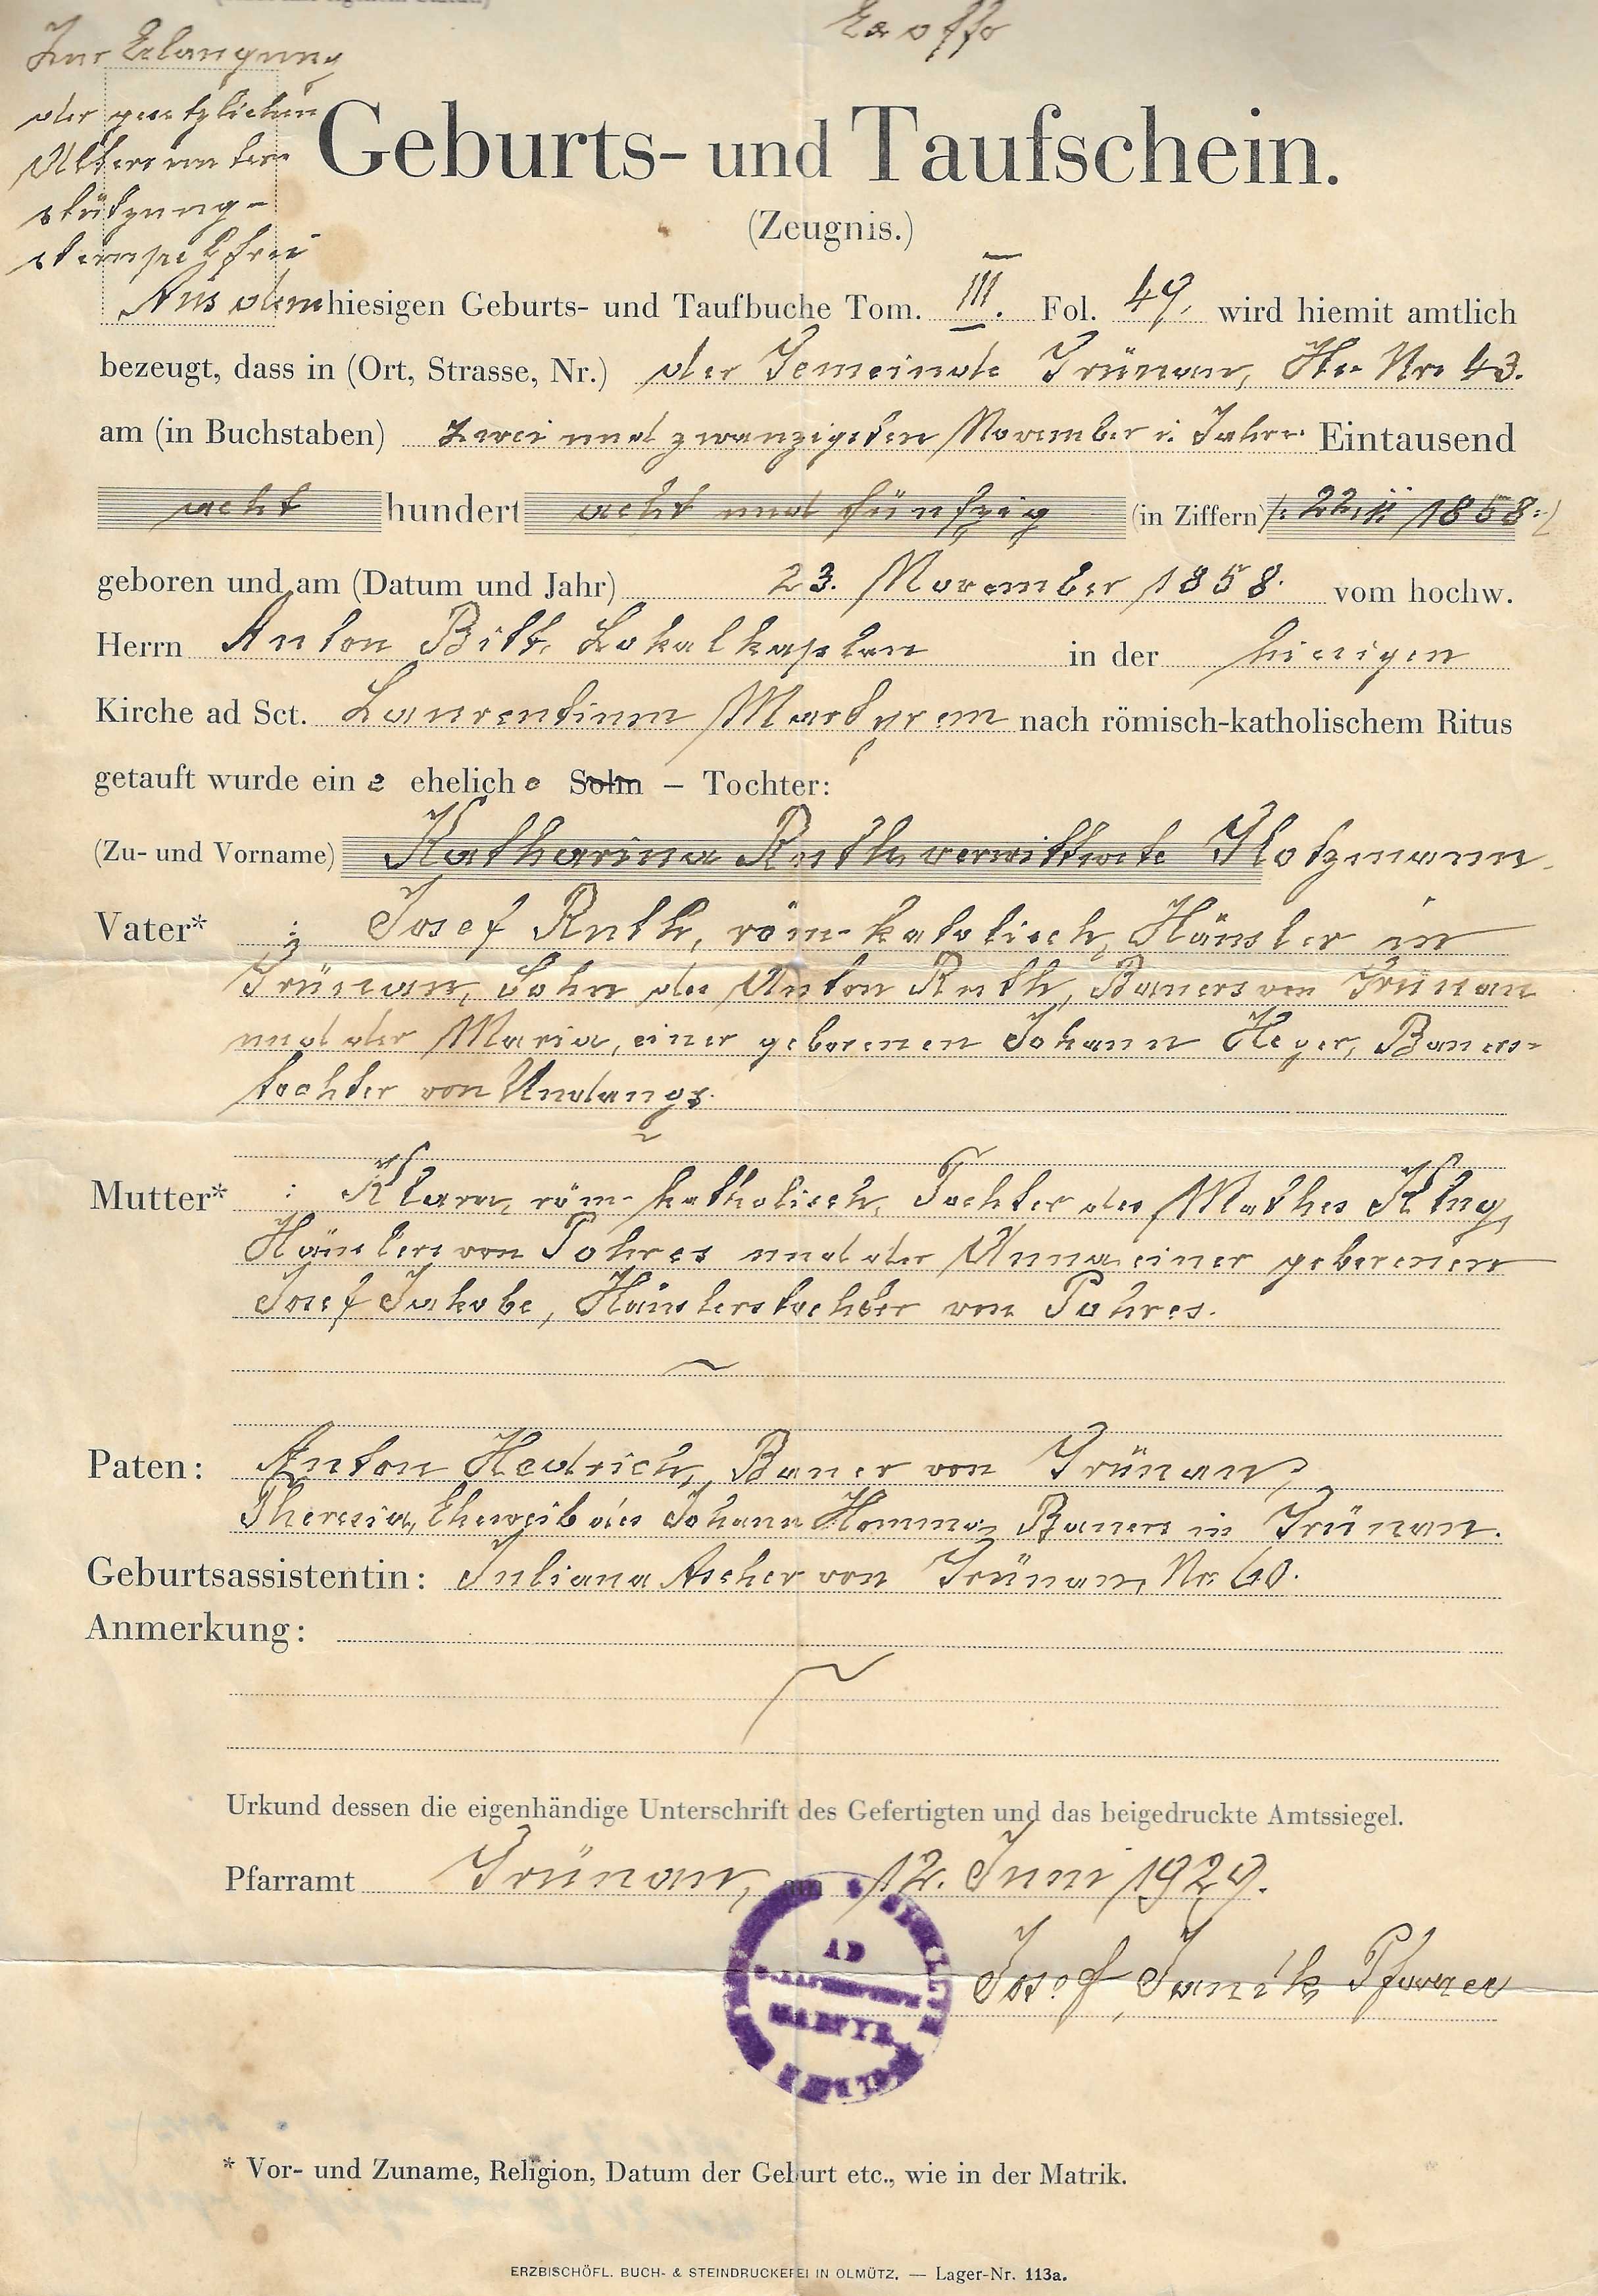 Ex offo
Zur Erlangung
der gesetzlichen
Altersunter-
stützung-
stempelfrei
Geburts- und Taufschein.
(Zeugnis.)
Aus dem hiesigen Geburts- und Taufbuche Tom. III. Fol. 49. wird hiemit amtlich
bezeugt, dass in (Ort, Strasse, Nr.) der Gemeinde Grünau, Hs. Nro 43.
am (in Buchstaben) zwei und zwanzigsten November i. Jahre Eintausend
acht hundert acht und fünfzig (in Ziffern) /: 22. 11 1858 :/
geboren und am (Datum und Jahr) 23. November 1858. vom hochw.
Herrn Anton Bitt. Lokalkaplan in der hiesigen
Kirche ad Sct. Laurentium Martyrem nach römisch-katholischem Ritus
getauft wurde ein e ehelich e Sohn – Tochter:
(Zu- und Vorname) Katharina Ruth verwittwete Klotzmann.
Vater* : Josef Ruth, röm. katolisch, Häusler in
Grünau, Sohn des Anton Ruth, Bauers von Grünau
und der Maria, einer geborenen Johann Heger, Bauers-
tochter von Undangs.
Mutter* : Klara, röm. katholisch, Tochter des Mathes Klug,
Häuslers von Pohres und der Anna einer geborenen
Josef Jakobe, Häuslerstochter von Pohres.
Paten: Anton Hedrich, Bauer von Grünau,
Theresia, Eheweib des Johann Homma, Bauers in Grünau.
Geburtsassistentin: Juliana Ascher von Grünau, Nr. 60.
Anmerkung:
Urkund dessen die eigenhändige Unterschrift des Gefertigten und das beigedruckte Amtssiegel.
Pfarramt Grünau, am 12. Juni 1929.
AD
MARTYR
Josef Janík Pfarrer
* Vor- und Zuname, Religion, Datum der Geburt etc., wie in der Matrik.
ERZBISCHÖFL. BUCH- & STEINDRUCKEREI IN OLMÜTZ. — Lager-Nr. 113a.